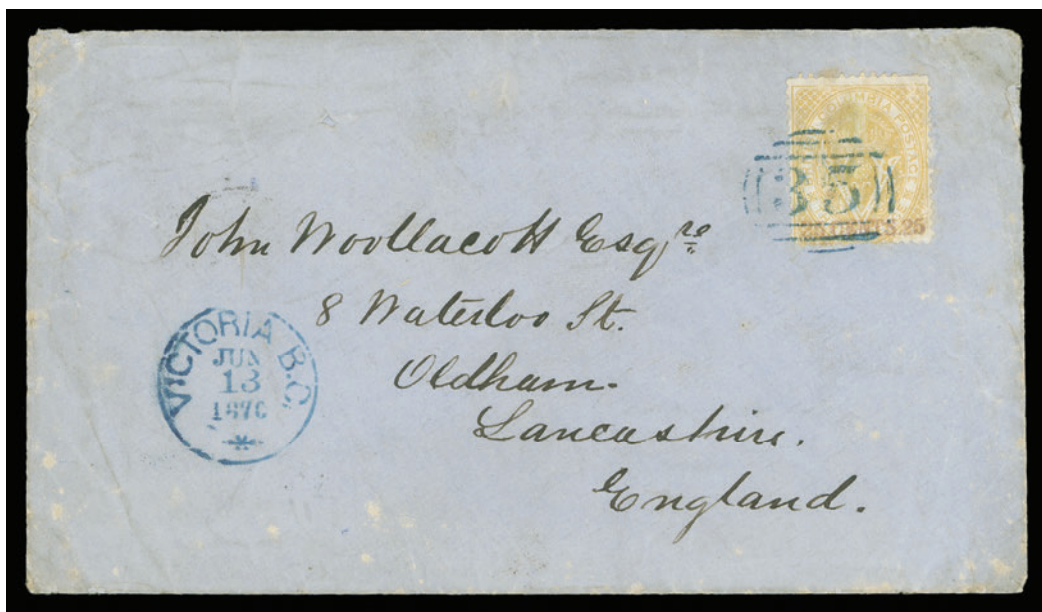 COLUMBIA POSTAGE
35
25.CENTS.25
John Woollacott Esqre
8 Waterloo St.
Oldham.
Lancashire.
England.
VICTORIA B.C.
JUN
13
1870